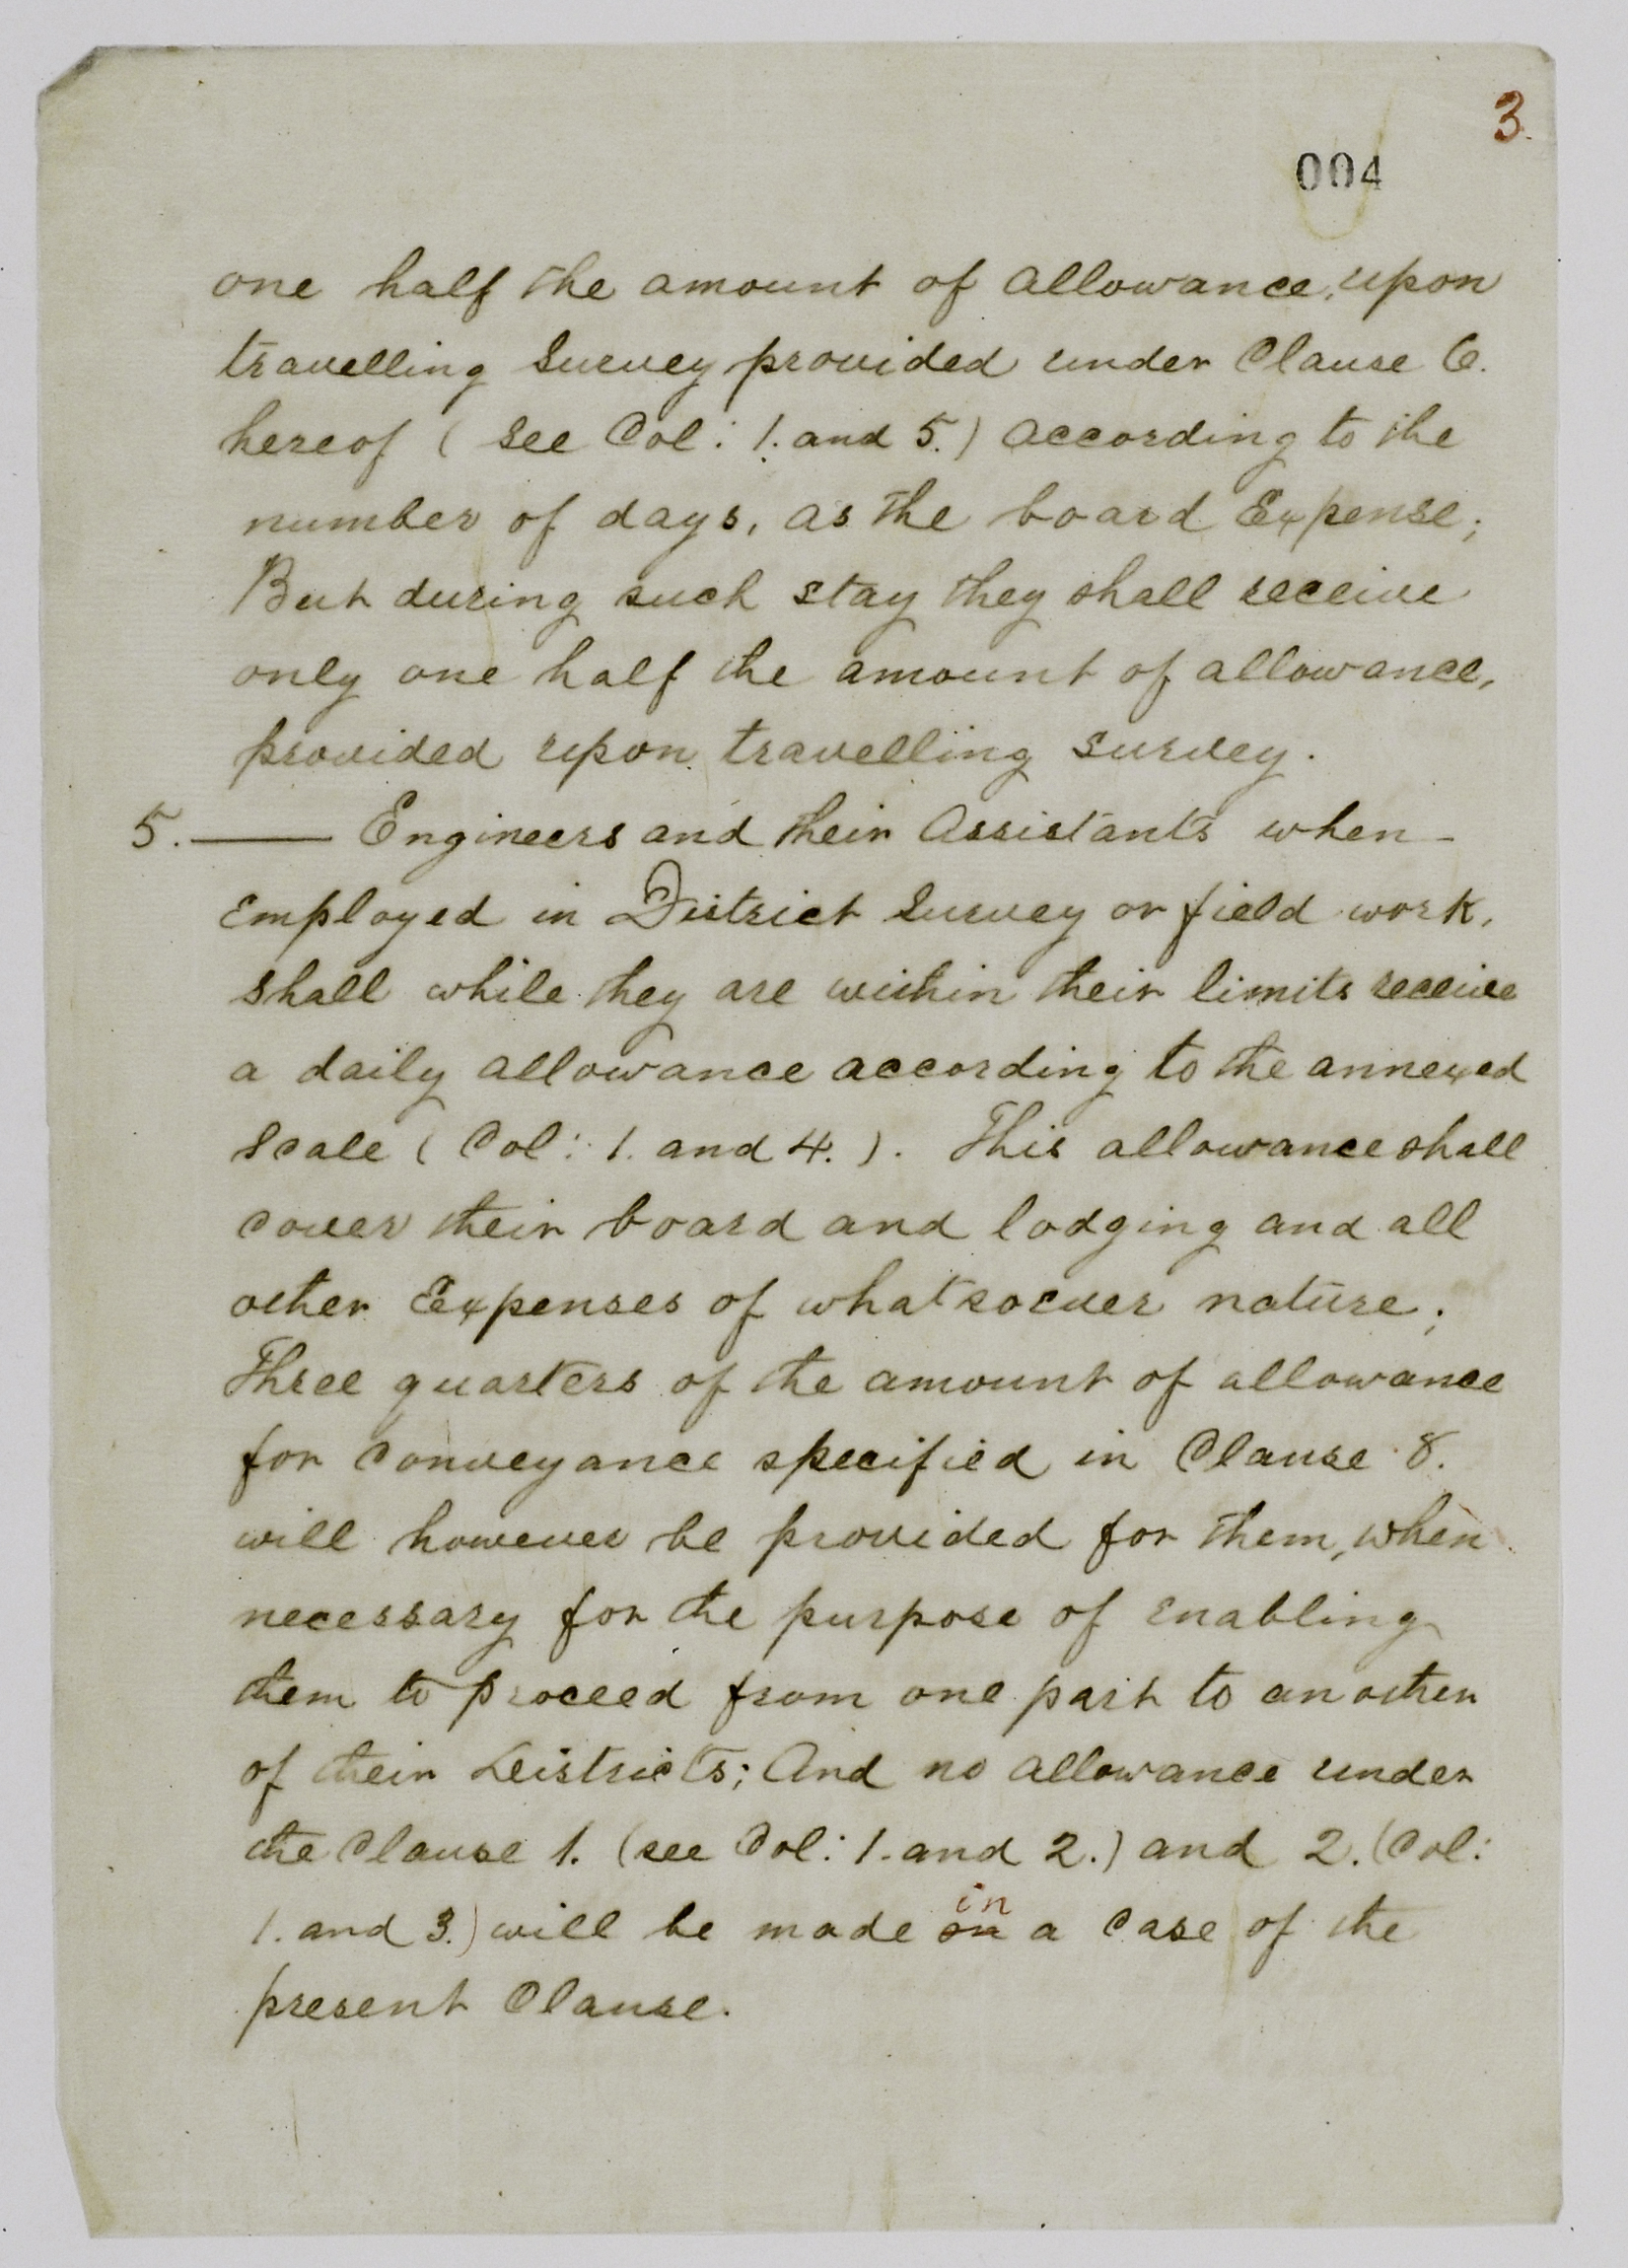 3.
004
one half the amount of allowance, upon
travelling Survey provided under Clause 6.
hereof ( see Col: 1. and 5.) according to the
number of days, as the board Expense;
But during such stay they shall receive
only one half the amount of allowance,
provided upon travelling survey.
5. —— Engineers and their Assistants when
Employed in District Survey or field work,
shall while they are within their limits receive
a daily allowance according to the annexed
Scale ( Col: 1. and 4. ). This allowance shall
cover their board and lodging and all
other Expenses of whatsoever nature;
Three quarters of the amount of allowance
for conveyance specified in Clause 8.
will however be provided for them, when
necessary for the purpose of enabling
them to proceed from one part to another
of their Districts; And no allowance under
the Clause 1. (see Col: 1. and 2.) and 2. (Col:
in
1. and 3.) will be made on a case of the
present Clause.